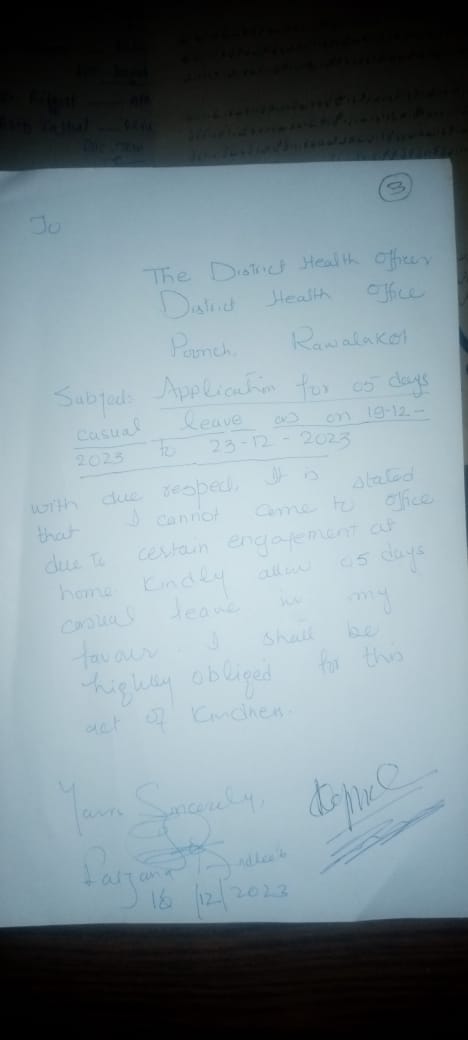 3
To
The District Health Officer
District Health Office
Poonch, Rawalakot
Subject: Application for 05 days
casual leave as on 19-12-
2023 to 23-12-2023
with due respect, It is stated
that I cannot come to office
due to certain engagement at
home. Kindly allow 05 days
casual leave in my
favour. I shall be
highly obliged for this
act of Kindness.
Yours Sincerely,
Farzana
18/12/2023